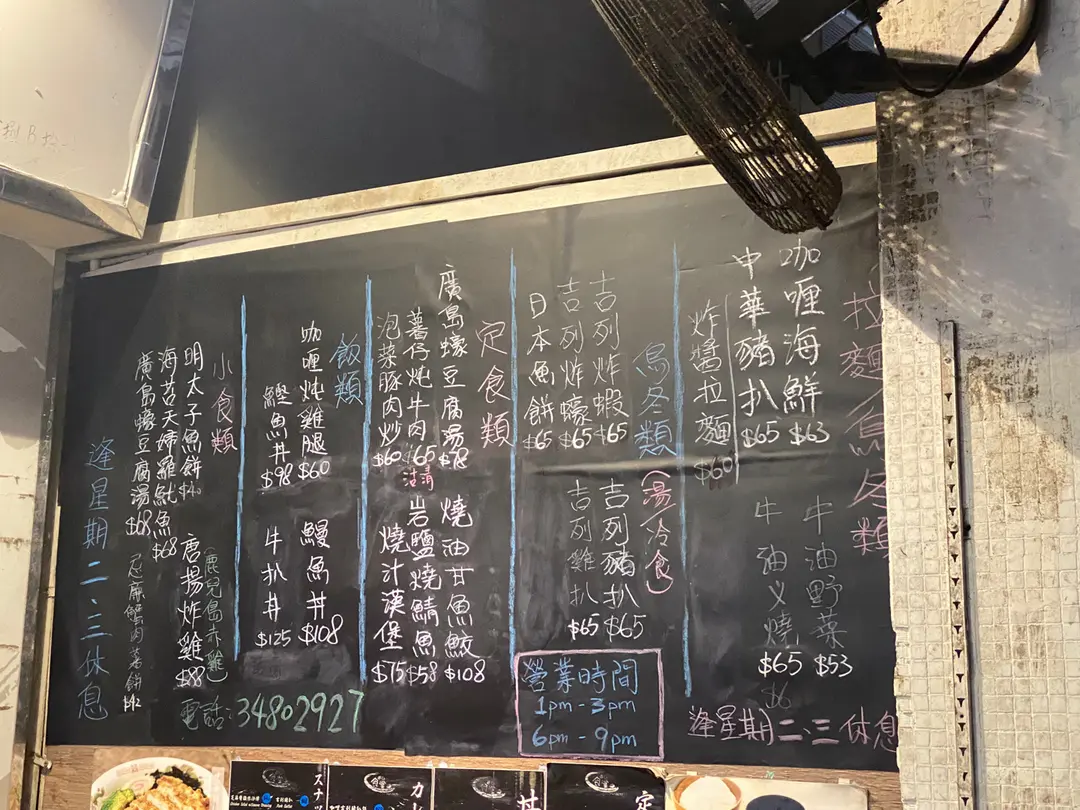 拉麵烏冬類
咖喱海鮮 $63
牛油野菜 $53
中華豬扒 $65
牛油义燒 $65
炸醬拉麵 $60
烏冬類(湯/冷食)
吉列炸蝦 $65
吉列豬扒 $65
吉列炸蠔 $65
吉列雞扒 $65
日本魚餅 $65
營業時間
1pm - 3pm
6pm - 9pm
逢星期二、三休息
定食類
廣島蠔豆腐湯 $78
燒油甘魚鮫 $108
薯仔炖牛肉 $65
沽清
岩鹽燒鯖魚 $58
泡菜豚肉炒 $60
燒汁漢堡 $75
飯類
咖喱炖雞腿 $60
鰻魚丼 $108
鰹魚丼 $98
牛扒丼 $125
小食類
(鹿兒島赤雞)
明太子魚餅
唐揚炸雞 $88
海苔天婦羅魷魚 $68
廣島蠔豆腐湯 $68
逢星期二、三休息
電話:34802927